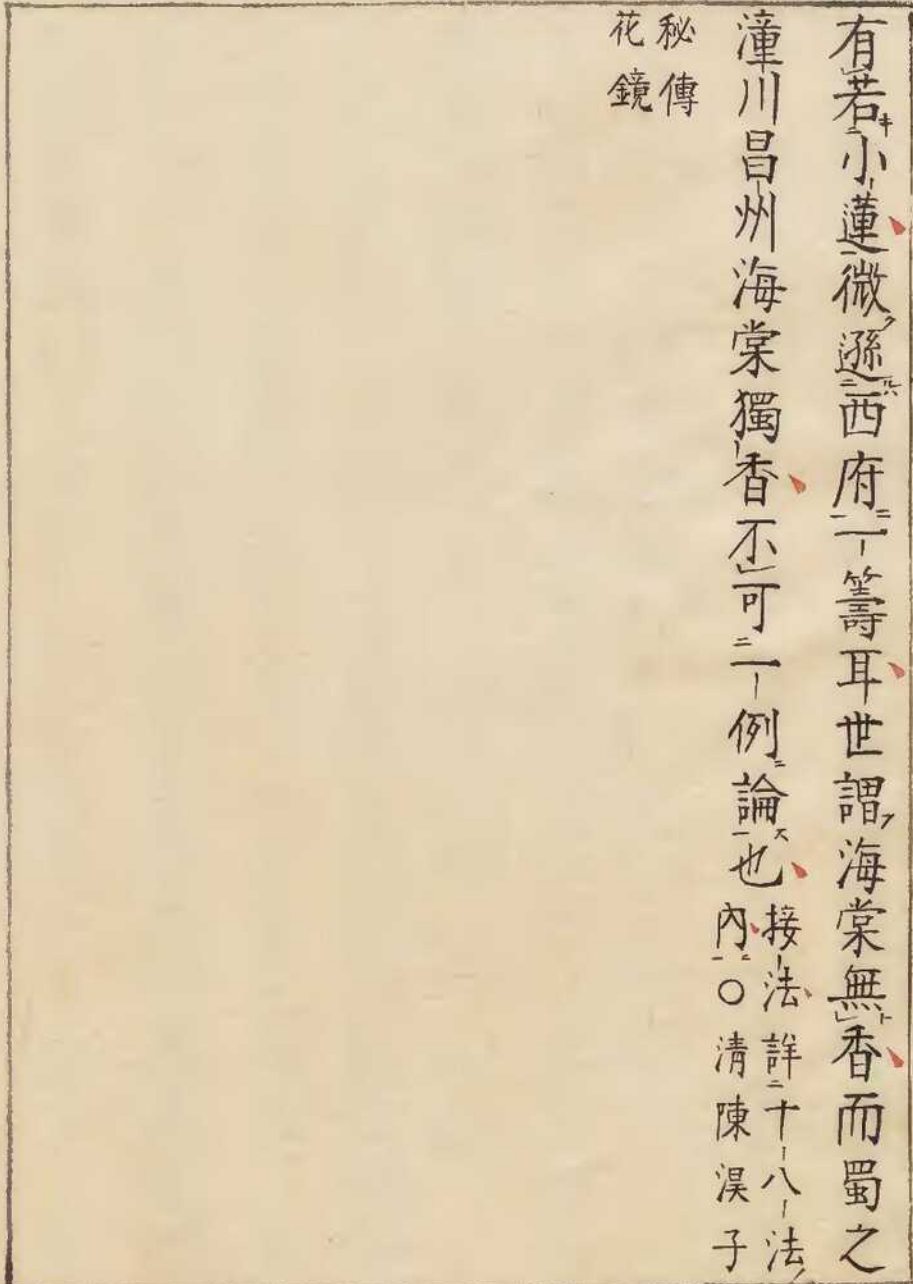 有若小蓮微遜西府一籌耳世謂海棠無香而蜀之
潼川昌州海棠獨香不可一例論也接法詳十八法
內○清陳淏子
秘傳
花鏡